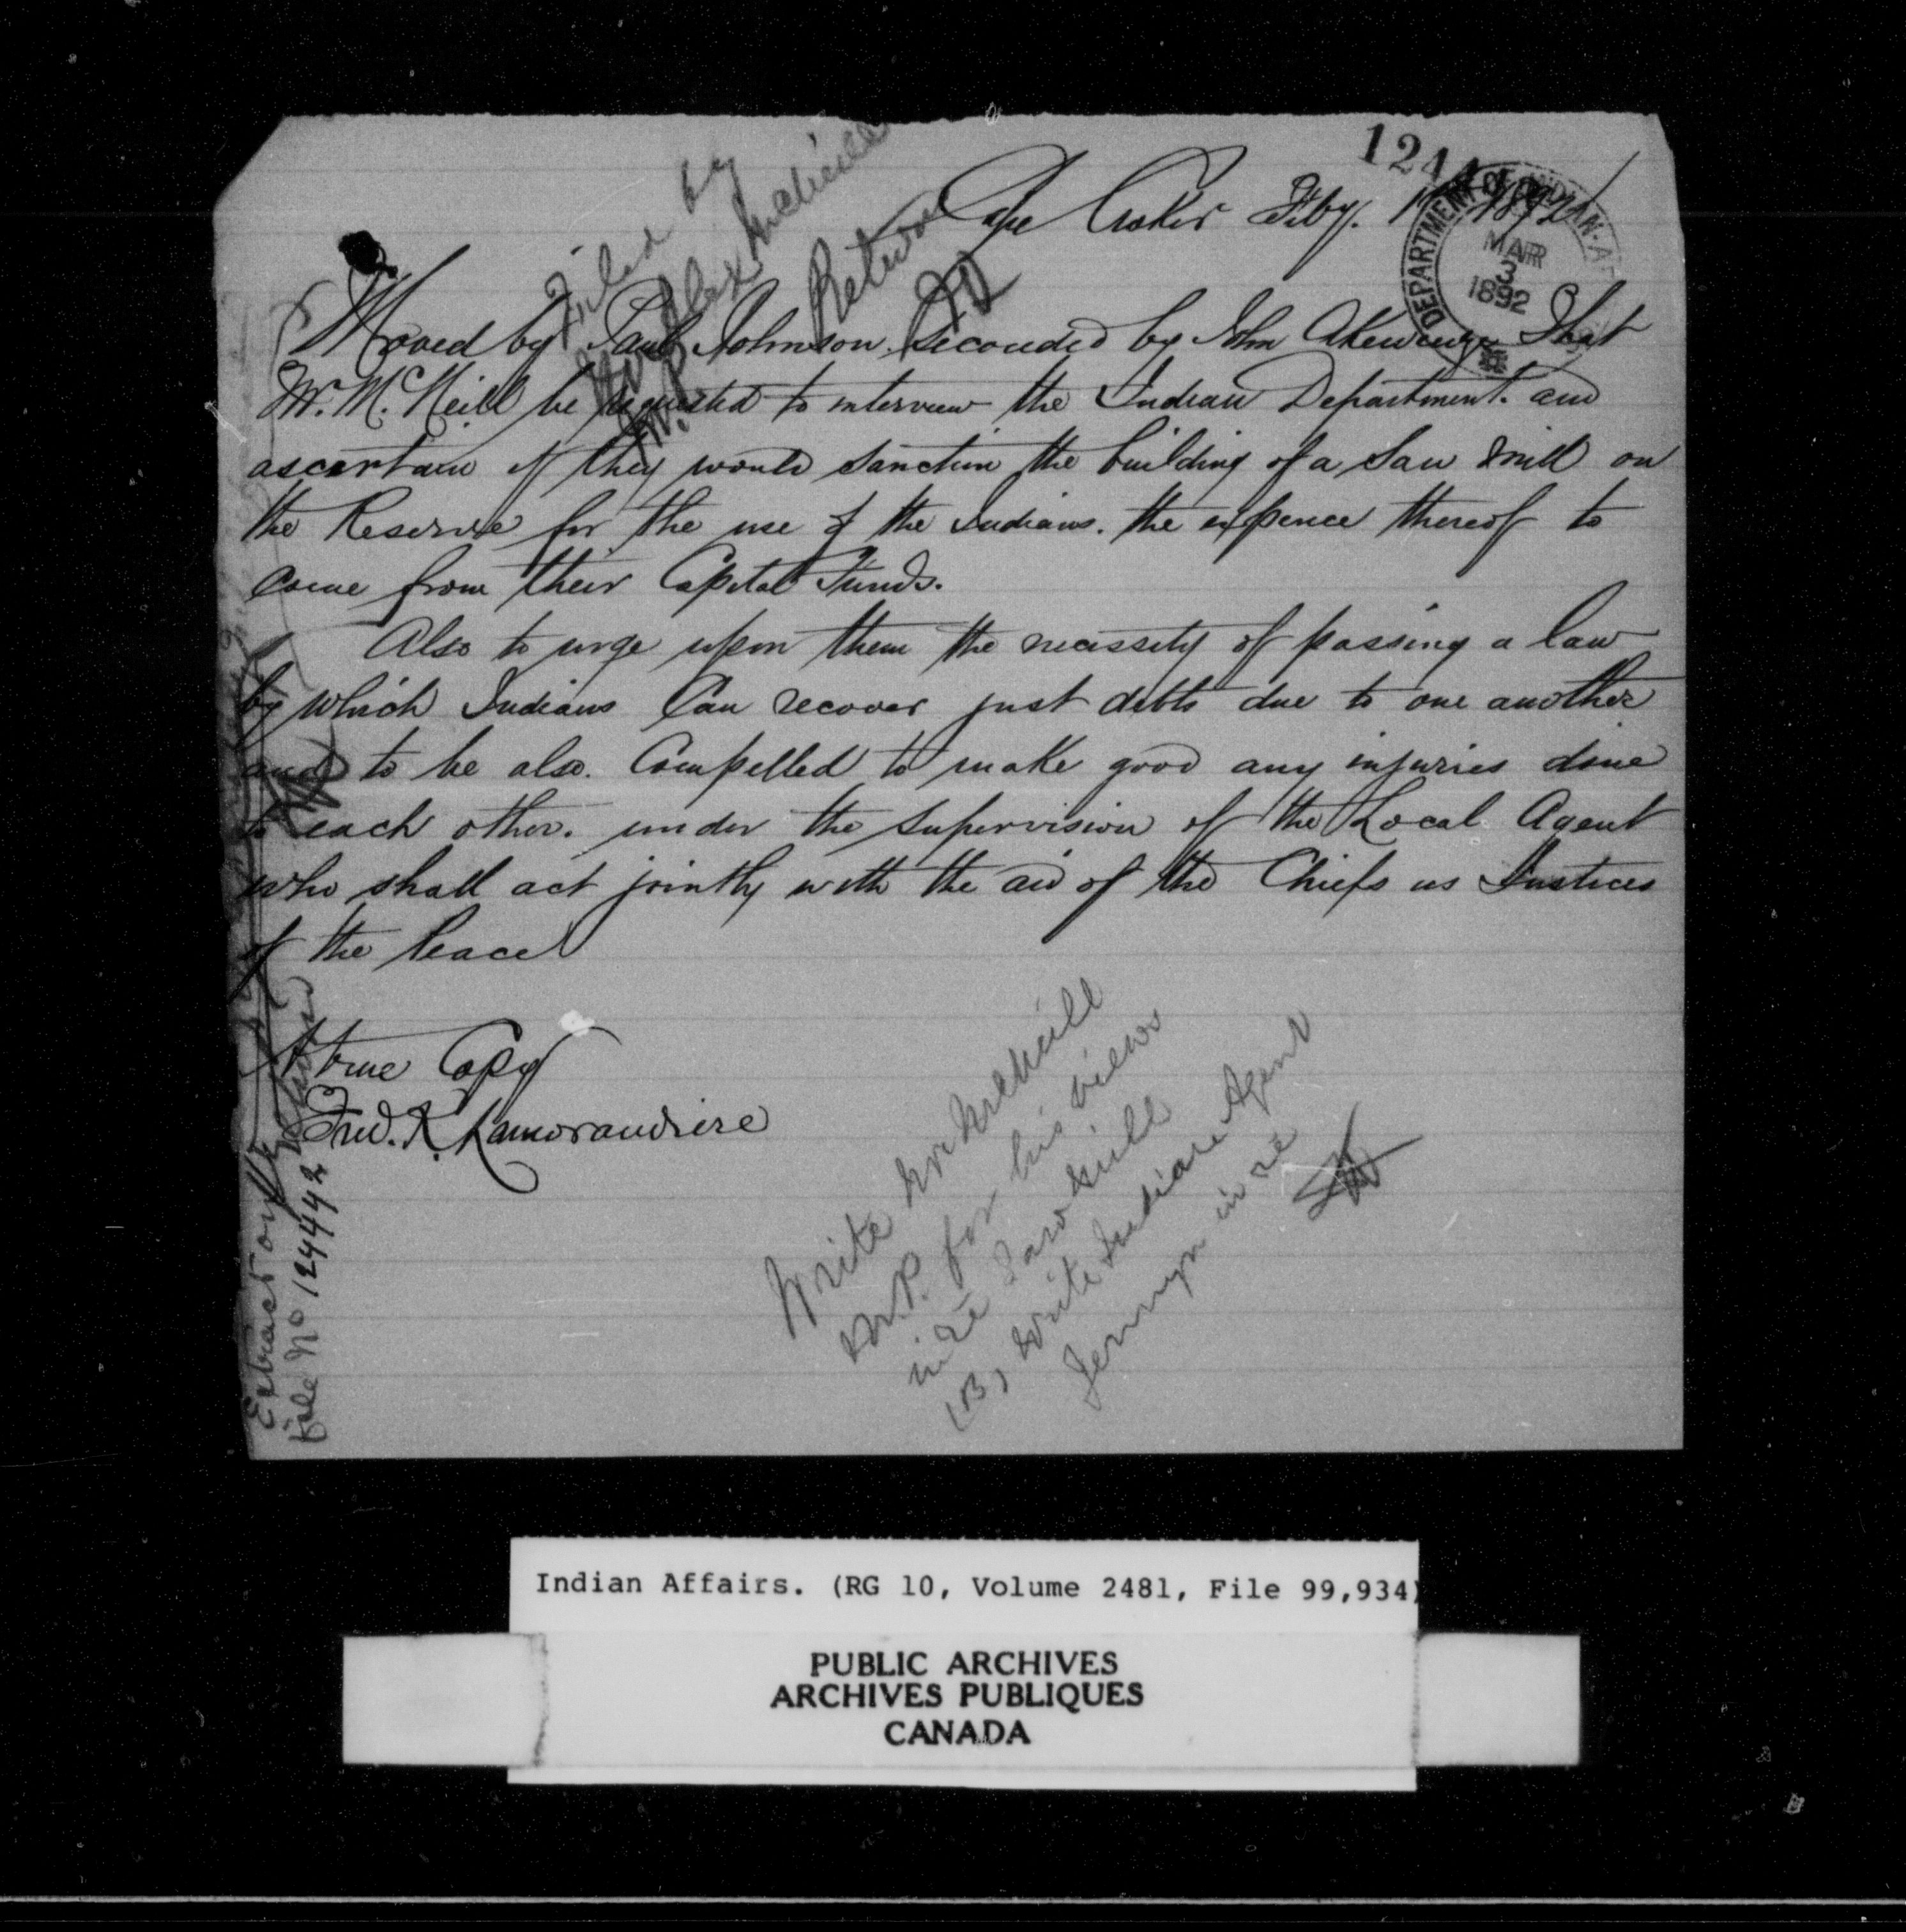 Cape Croker Feby. 1892
DEPARTMENT OF INDIAN AFFAIRS
MAR
3
1892
Filed by
Alex McNeill
M.P.
Return
Moved by Paul Johnson, seconded by John Akewenze That
Mr. McNeill be requested to interview the Indian Department. and
ascertain if they would sanction the building of a Saw Mill on
the Reserve for the use of the Indians. the expence thereof to
come from their Capital Funds.
Also to urge upon them the necessity of passing a law
by which Indians Can recover just debts due to one another
and to be also. Compelled to make good any injuries done
to each other. under the supervision of the Local Agent
who shall act jointly with the aid of the Chiefs as Justices
of the Peace
A true Copy
Fred. K. Lamorandiere
Write Mr McNeill
M.P. for his views
in re Saw Mill
(B) Write Indian Agent
Jermyn in re
Extract on
file No 124442
Indian Affairs. (RG 10, Volume 2481, File 99,934)
PUBLIC ARCHIVES
ARCHIVES PUBLIQUES
CANADA